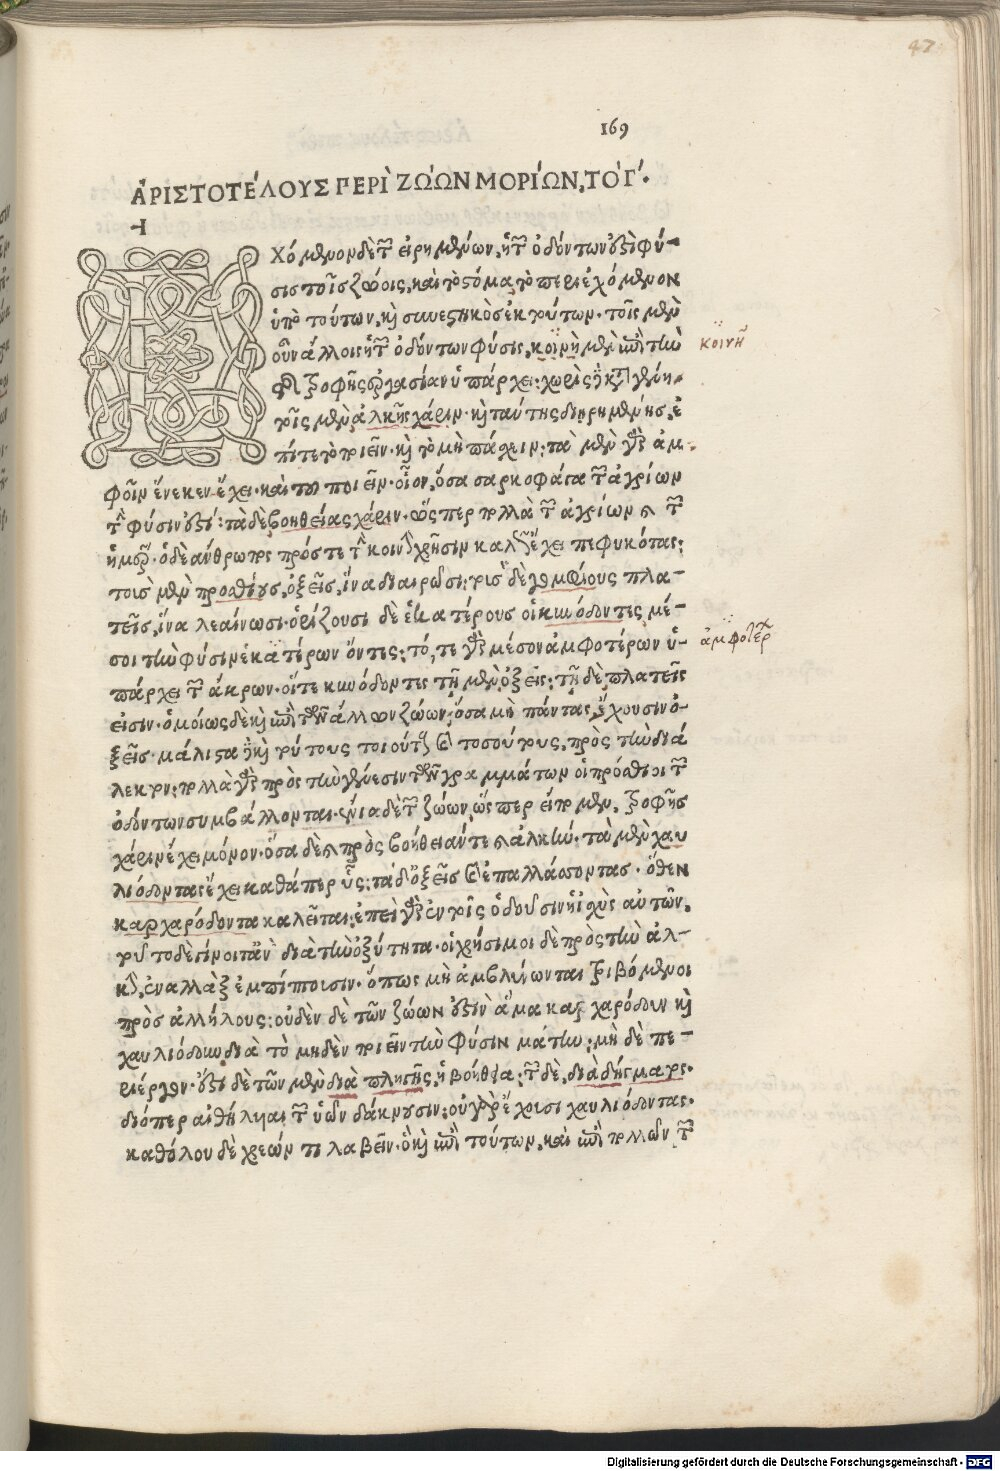 47
169
ἈΡΙΣΤΟΤΈΛΟΥΣ ΠΕΡῚ ΖΏΩΝ ΜΟΡΊΩΝ, ΤῸ Γ´.
ΧΌμενον δὲ τῶν εἰρημένων, ἡ τῶν ὀδόντων ἐστὶ φύ-
σις τοῖς ζώοις, καὶ τὸ στόμα τὸ περιεχόμενον
ὑπὸ τούτων, καὶ συνεστηκὸς ἐκ τούτων. τοῖς μὲν
οὖν ἄλλοις ἡ τῶν ὀδόντων φύσις, κοινὴ μὲν ἐπὶ τὴν
τῆς τροφῆς ἐργασίαν ὑπάρχει: χωρὶς δὲ κατὰ γένη.
τοῖς μὲν ἀλκῆς χάριν. καὶ ταύτης διῃρημένης, ἐ
πί τε τὸ ποιεῖν. καὶ τὸ μὴ πάσχειν: τὰ μὲν γὰρ ἀμ-
φοῖν ἕνεκεν ἔχει. καὶ τοῦ ποιεῖν. οἷον, ὅσα σαρκοφάγα τῶν ἀγρίων
τὴν φύσιν ἐστί: τὰ δὲ βοηθείας χάριν. ὥσπερ πολλὰ τῶν ἀγρίων καὶ τῶν
ἡμέρων. ὁ δὲ ἄνθρωπος πρός τε τὴν κοινὴν χρῆσιν καλῶς ἔχει πεφυκότας:
τοὺς μὲν προσθίους, ὀξεῖς, ἵνα διαιρῶσι: τοὺς δὲ γομφίους πλα-
τεῖς, ἵνα λεαίνωσι. ὁρίζουσι δὲ ἑκατέρους οἱ κυνόδοντες, μέ-
σοι τὴν φύσιν ἑκατέρων ὄντες: τό, τε γὰρ μέσον ἀμφοτέρων ὑ-
πάρχει τῶν ἄκρων. οἵ τε κυνόδοντες τῇ μὲν ὀξεῖς: τῇ δὲ πλατεῖς
εἰσιν. ὁμοίως δὲ καὶ ἐπὶ τῶν ἄλλων ζώων, ὅσα μὴ πάντας ἔχουσιν ὀ-
ξεῖς. μάλιστα δὲ καὶ τούτους τοιούτους καὶ τοσούτους, πρὸς τὴν διά
λεκτον: πολλὰ γὰρ πρὸς τὴν γένεσιν τῶν γραμμάτων οἱ πρόσθιοι τῶν
ὀδόντων συμβάλλονται. ἔνια δὲ τῶν ζώων, ὥσπερ εἴπομεν, τροφῆς
χάριν ἔχει μόνον. ὅσα δὲ καὶ πρὸς βοήθειάν τε καὶ ἀλκήν. τὰ μὲν χαυ
λιόδοντας ἔχει καθάπερ ὗς: τὰ δ᾽ ὀξεῖς καὶ ἐπαλλάσσοντας. ὅθεν
καρχαρόδοντα καλεῖται: ἐπεὶ γὰρ ἐν τοῖς ὀδοῦσιν ἡ ἰσχὺς αὐτῶν.
τοῦτο δὲ γίνοιτ᾽ ἂν διὰ τὴν ὀξύτητα. οἱ χρήσιμοι δὲ πρὸς τὴν ἀλ-
κὴν, ἐναλλὰξ ἐμπίπτουσιν. ὅπως μὴ ἀμβλύνωνται τριβόμενοι
πρὸς ἀλλήλους: οὐδὲν δὲ τῶν ζώων ἐστὶν ἅμα καρχαρόδουν καὶ
χαυλιόδουν διὰ τὸ μηδὲν ποιεῖν τὴν φύσιν μάτην: μὴ δὲ πε-
ρίεργον. ἔστι δὲ τῶν μὲν διὰ πληγῆς, ἡ βοήθεια: τῶν δὲ, διὰ δήγματος.
διόπερ αἱ θήλειαι τῶν ὑῶν δάκνουσιν: οὐ γὰρ ἔχουσι χαυλιόδοντας.
καθόλου δὲ χρεών τι λαβεῖν. ὃ καὶ ἐπὶ τούτων, καὶ ἐπὶ πολλῶν τῶν
κοινῆ
ἀμφοτέρ
Digitalisierung gefördert durch die Deutsche Forschungsgemeinschaft - DFG